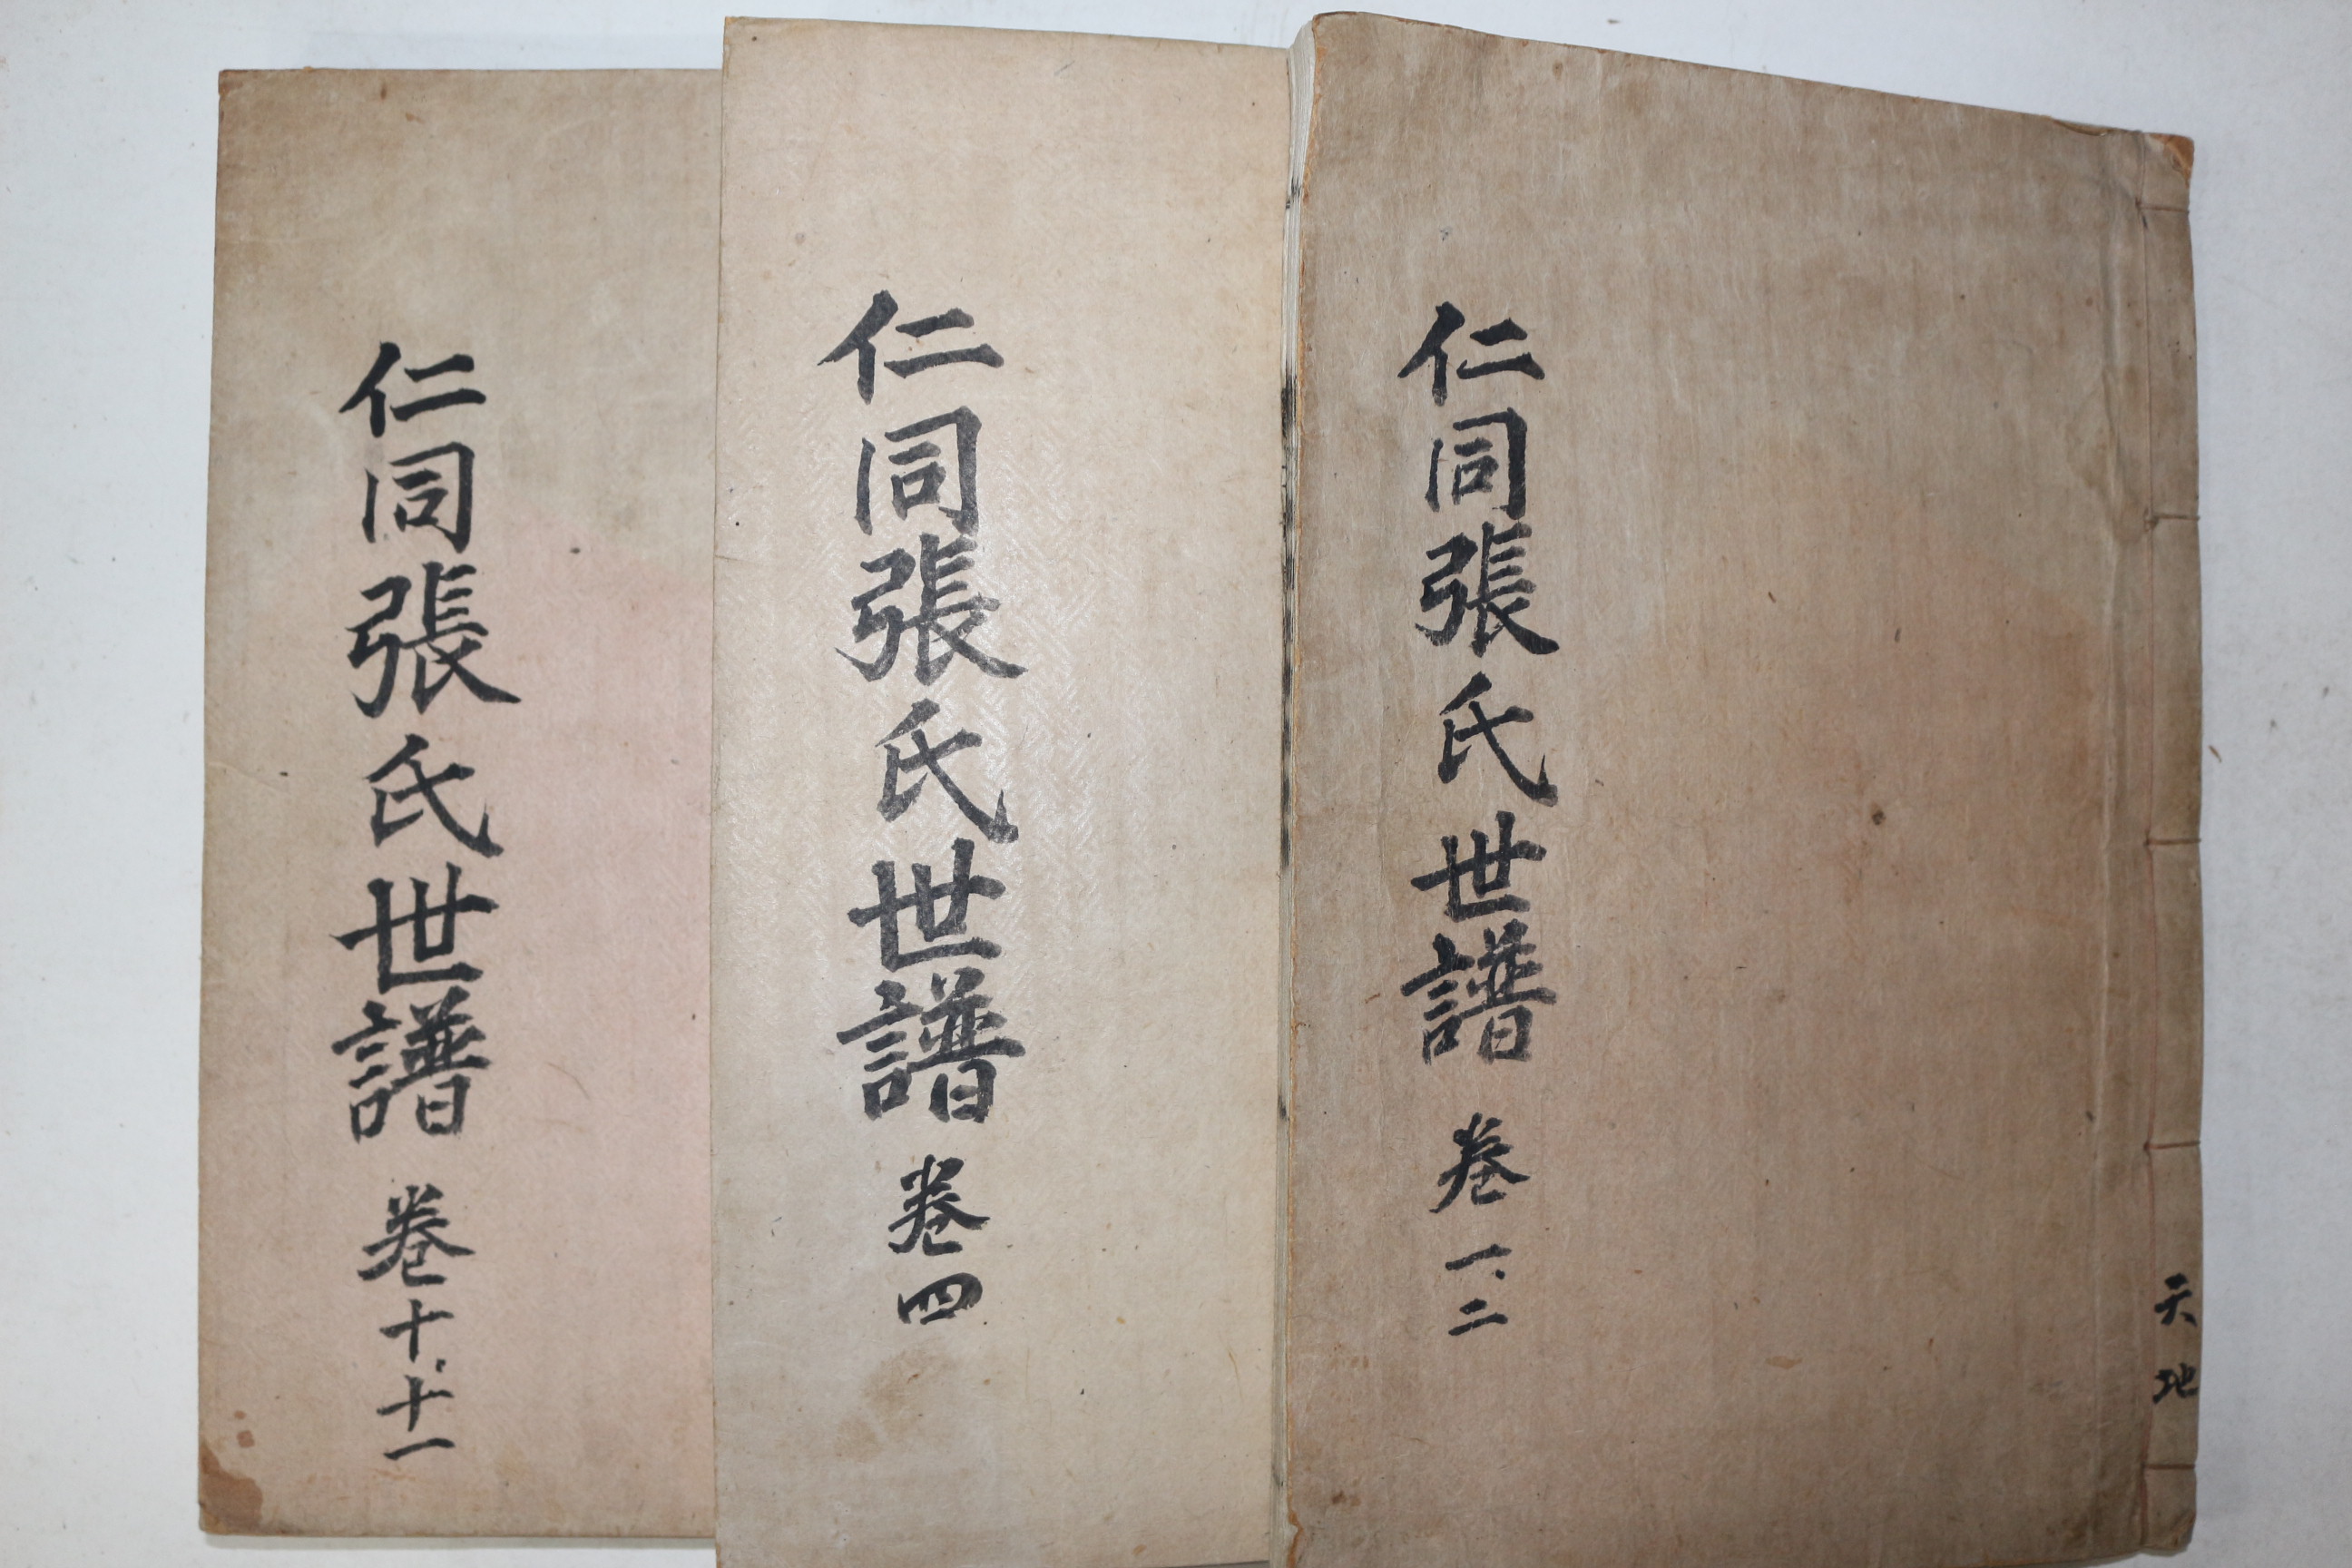 天地
仁同張氏世譜 卷一、二
仁同張氏世譜 卷四
仁同張氏世譜 卷十、十一